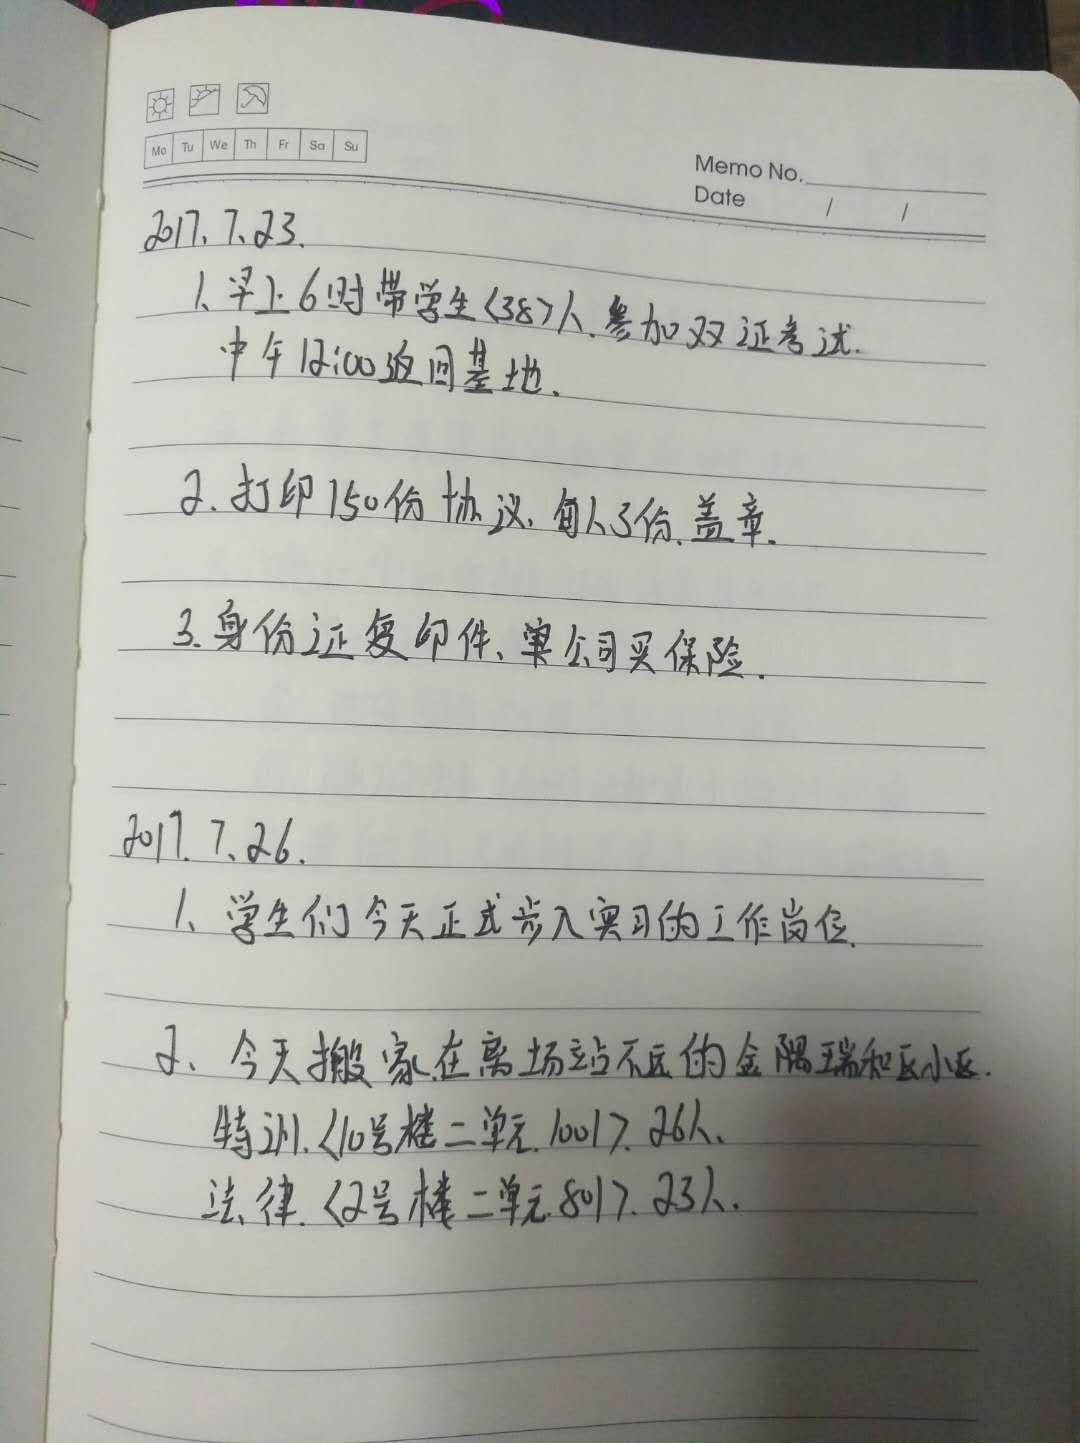 Mo Tu We Th Fr Sa Su
Memo No.
Date / /
2017.7.23.
1、早上6时带学生<38>人.参加双证考试.
中午12:00返回基地.
2.打印150份协议、每人3份.盖章.
3.身份证复印件、单公司买保险.
2017.7.26.
1、学生们今天正式步入实习的工作岗位.
2、今天搬家.在离场站不远的金隅瑞和园小区.
特训.<10号楼二单元.1001>.26人.
法律.<2号楼二单元.801>.23人.